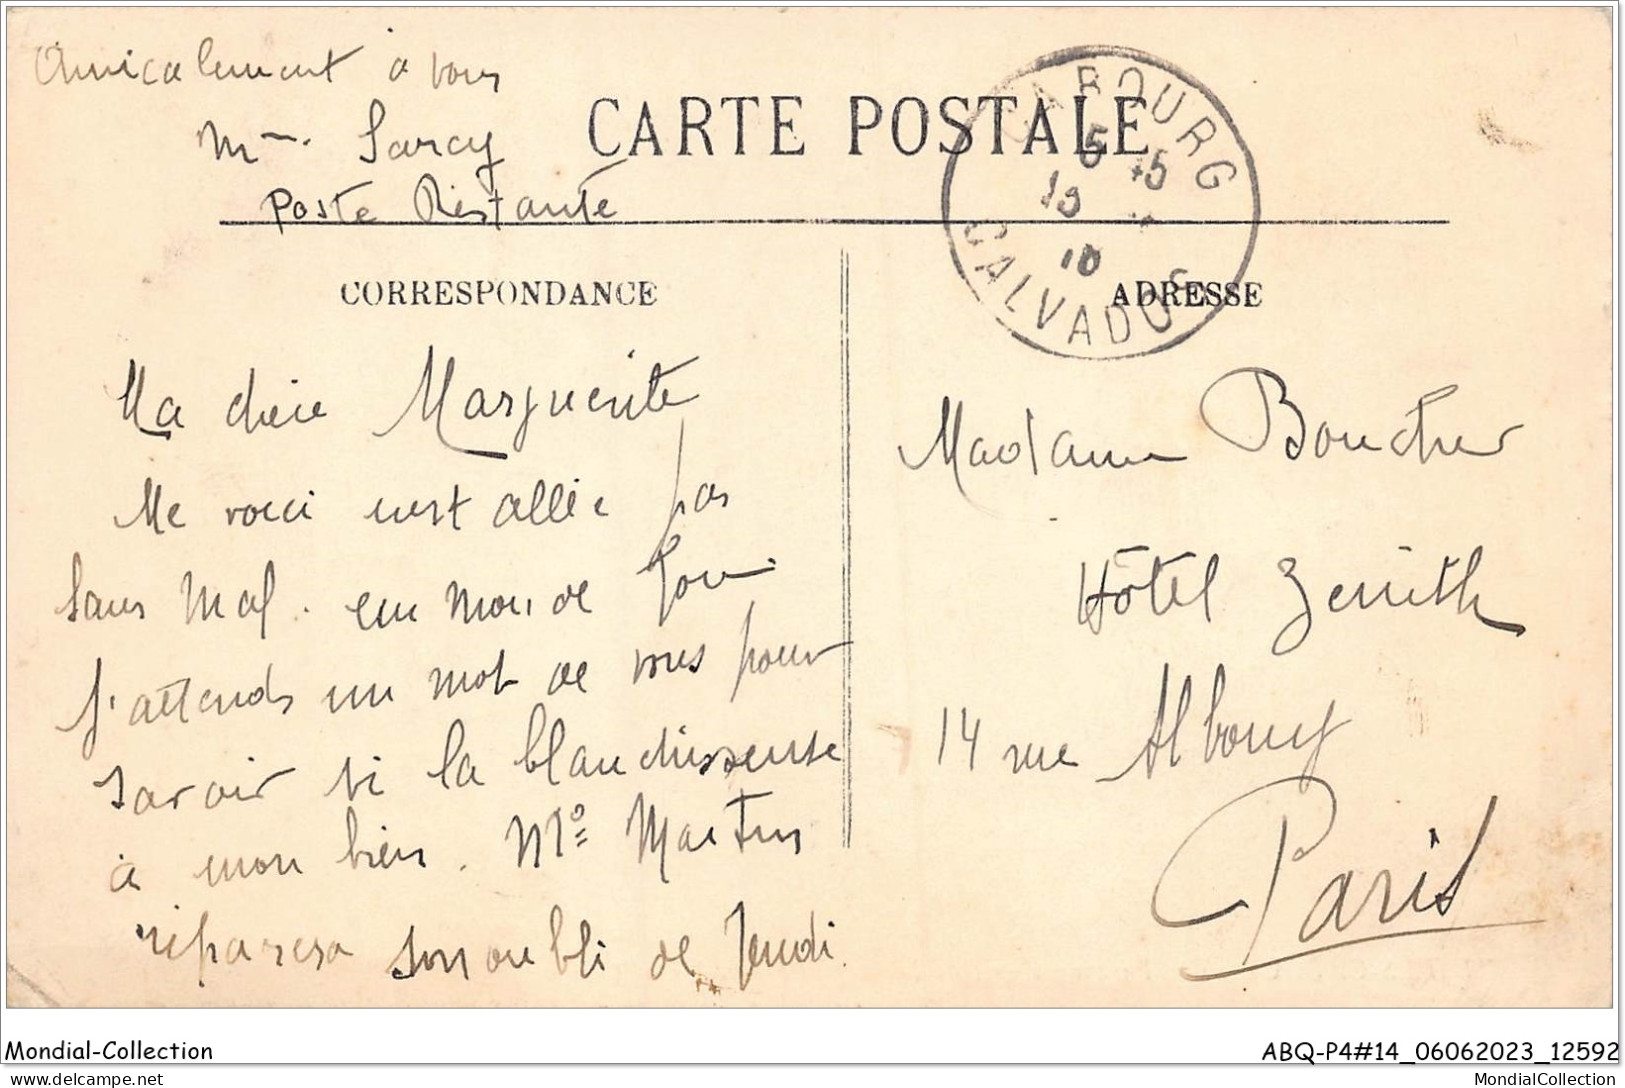 Amicalement à vous
Mme Sarcy
Poste Restante
CARTE POSTALE
CABOURG
5 15
19
10
CALVADOS
CORRESPONDANCE
ADRESSE
Ma chère Marguerite
Me voici c'est allée pas
sans mal.
J'attends un mot de vous pour
savoir si la blanchisseuse
a mon bien. Mo Martin
réparera son oubli de Jeudi.
Madame Boucher
Hôtel Zenith
14 rue Albouy
Paris
Mondial-Collection
ABQ-P4#14_06062023_12592
delcampe.net
MondialCollection